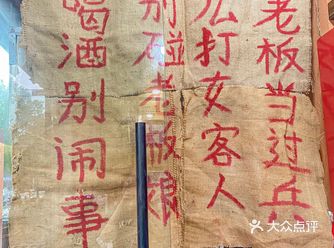 老板当过兵
公打女客人
别碰老板娘
喝酒别闹事
大众点评